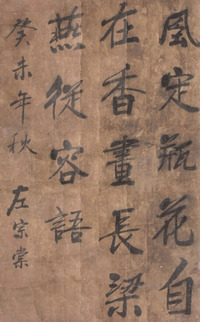 風定瓶花自
在香畫長梁
燕從容語
癸未年秋
左宗棠